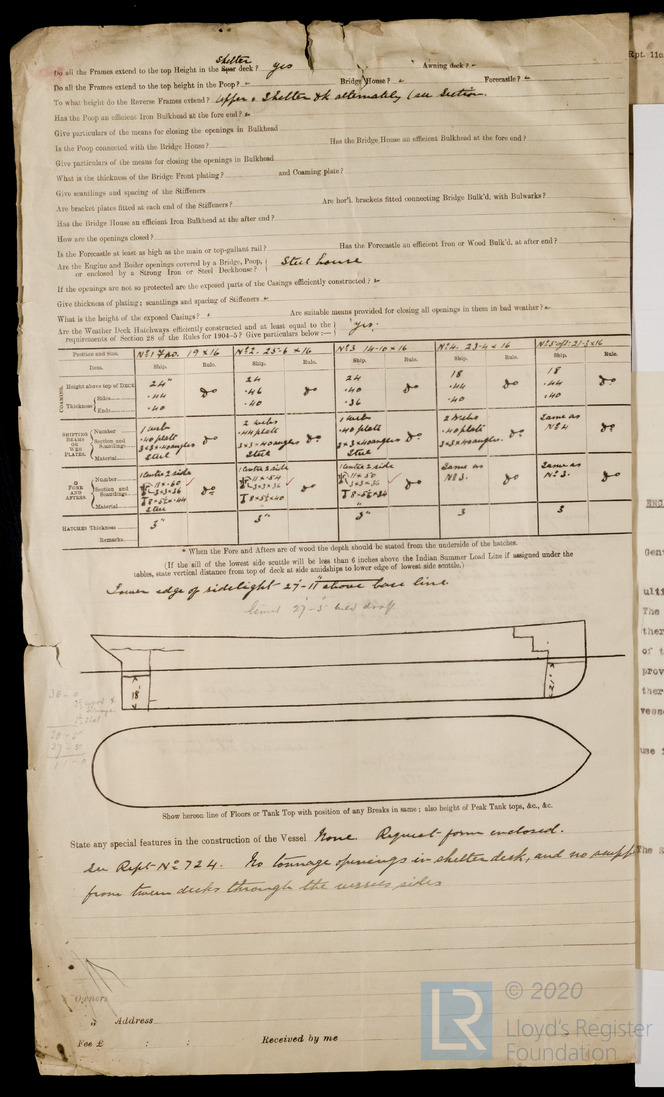 Shelter
Do all the Frames extend to the top Height in the Spar deck? yes Awning deck? -
Do all the Frames extend to the top height in the Poop? - Bridge House? - Forecastle? -
To what height do the Reverse Frames extend? Upper & Shelter dk alternately (see Section.
Has the Poop an efficient Iron Bulkhead at the fore end? -
Give particulars of the means for closing the openings in Bulkhead
Is the Poop connected with the Bridge House? Has the Bridge House an efficient Bulkhead at the fore end?
Give particulars of the means for closing the openings in Bulkhead
What is the thickness of the Bridge Front plating? and Coaming plate?
Give scantlings and spacing of the Stiffeners
Are bracket plates fitted at each end of the Stiffeners? Are hor'l. brackets fitted connecting Bridge Bulk'd. with Bulwarks?
Has the Bridge House an efficient Iron Bulkhead at the after end?
How are the openings closed?
Is the Forecastle at least as high as the main or top-gallant rail? Has the Forecastle an efficient Iron or Wood Bulk'd. at after end?
Are the Engine and Boiler openings covered by a Bridge, Poop, or enclosed by a Strong Iron or Steel Deckhouse? Steel house
If the openings are not so protected are the exposed parts of the Casings efficiently constructed? -
Give thickness of plating; scantlings and spacing of Stiffeners -
What is the height of the exposed Casings? - Are suitable means provided for closing all openings in them in bad weather? -
Are the Weather Deck Hatchways efficiently constructed and at least equal to the
requirements of Section 28 of the Rules for 1904-5? Give particulars below:— yes.
Position and Size. No 1 Fwd. 19 x 16 No 2. 25-6 x 16 No 3 14-10 x 16 No 4. 23-4 x 16 No 5 aft. 21-2 x 16
Item. Ship. Rule. Ship. Rule. Ship. Rule. Ship. Rule. Ship. Rule.
COAMING. Height above top of DECK 24" do 24 do 24 do 18 do 18 do
Thickness Sides .44 .46 .40 .44 .44
Ends .40 .40 .36 .40 .40
SHIFTING BEAMS OR WEB PLATES. Number 1 web 2 webs 1 web 2 webs Same as
Section and Scantlings .40 plate do .44 plate do .40 plate do .40 plate do No 4 do
3x3x.40 angles 3x3x.40 angles 3x3x.40 angles 3x3x.40 angles.
Material Steel Steel Steel
* FORE AND AFTERS. Number 1 Centre 2 side 1 Centre 2 side 1 Centre 2 side Same as Same as
Section and Scantlings 11 x .60 do 11 x .54 do 11 x .50 do No 3. do No 3. do
3x3x36 3x3x36 3x3x36
8x5½x.44 8x5½x40 8x5½x34
Material Steel
HATCHES Thickness 3" 3" 3" 3 3
Remarks
* When the Fore and Afters are of wood the depth should be stated from the underside of the hatches.
(If the sill of the lowest side scuttle will be less than 6 inches above the Indian Summer Load Line if assigned under the
tables, state vertical distance from top of deck at side amidships to lower edge of lowest side scuttle.)
Lower edge of sidelight 27-11" above base line
27-5
18
21
Show hereon line of Floors or Tank Top with position of any Breaks in same; also height of Peak Tank tops, &c., &c.
State any special features in the construction of the Vessel None. Request form enclosed.
See Rept No 724. No tonnage openings in shelter deck, and no
from tween decks through the vessels sides
Owners
" Address
Fee £ : : Received by me
Rpt. 11c
ENG
Gen
The
ther
of t
prov
ther
vess
use
The S
LR
© 2020
Lloyd's Register
Foundation